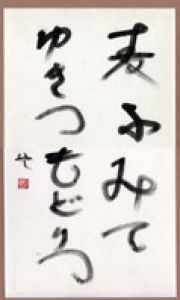 麦ふみて
ゆきつもどりつ